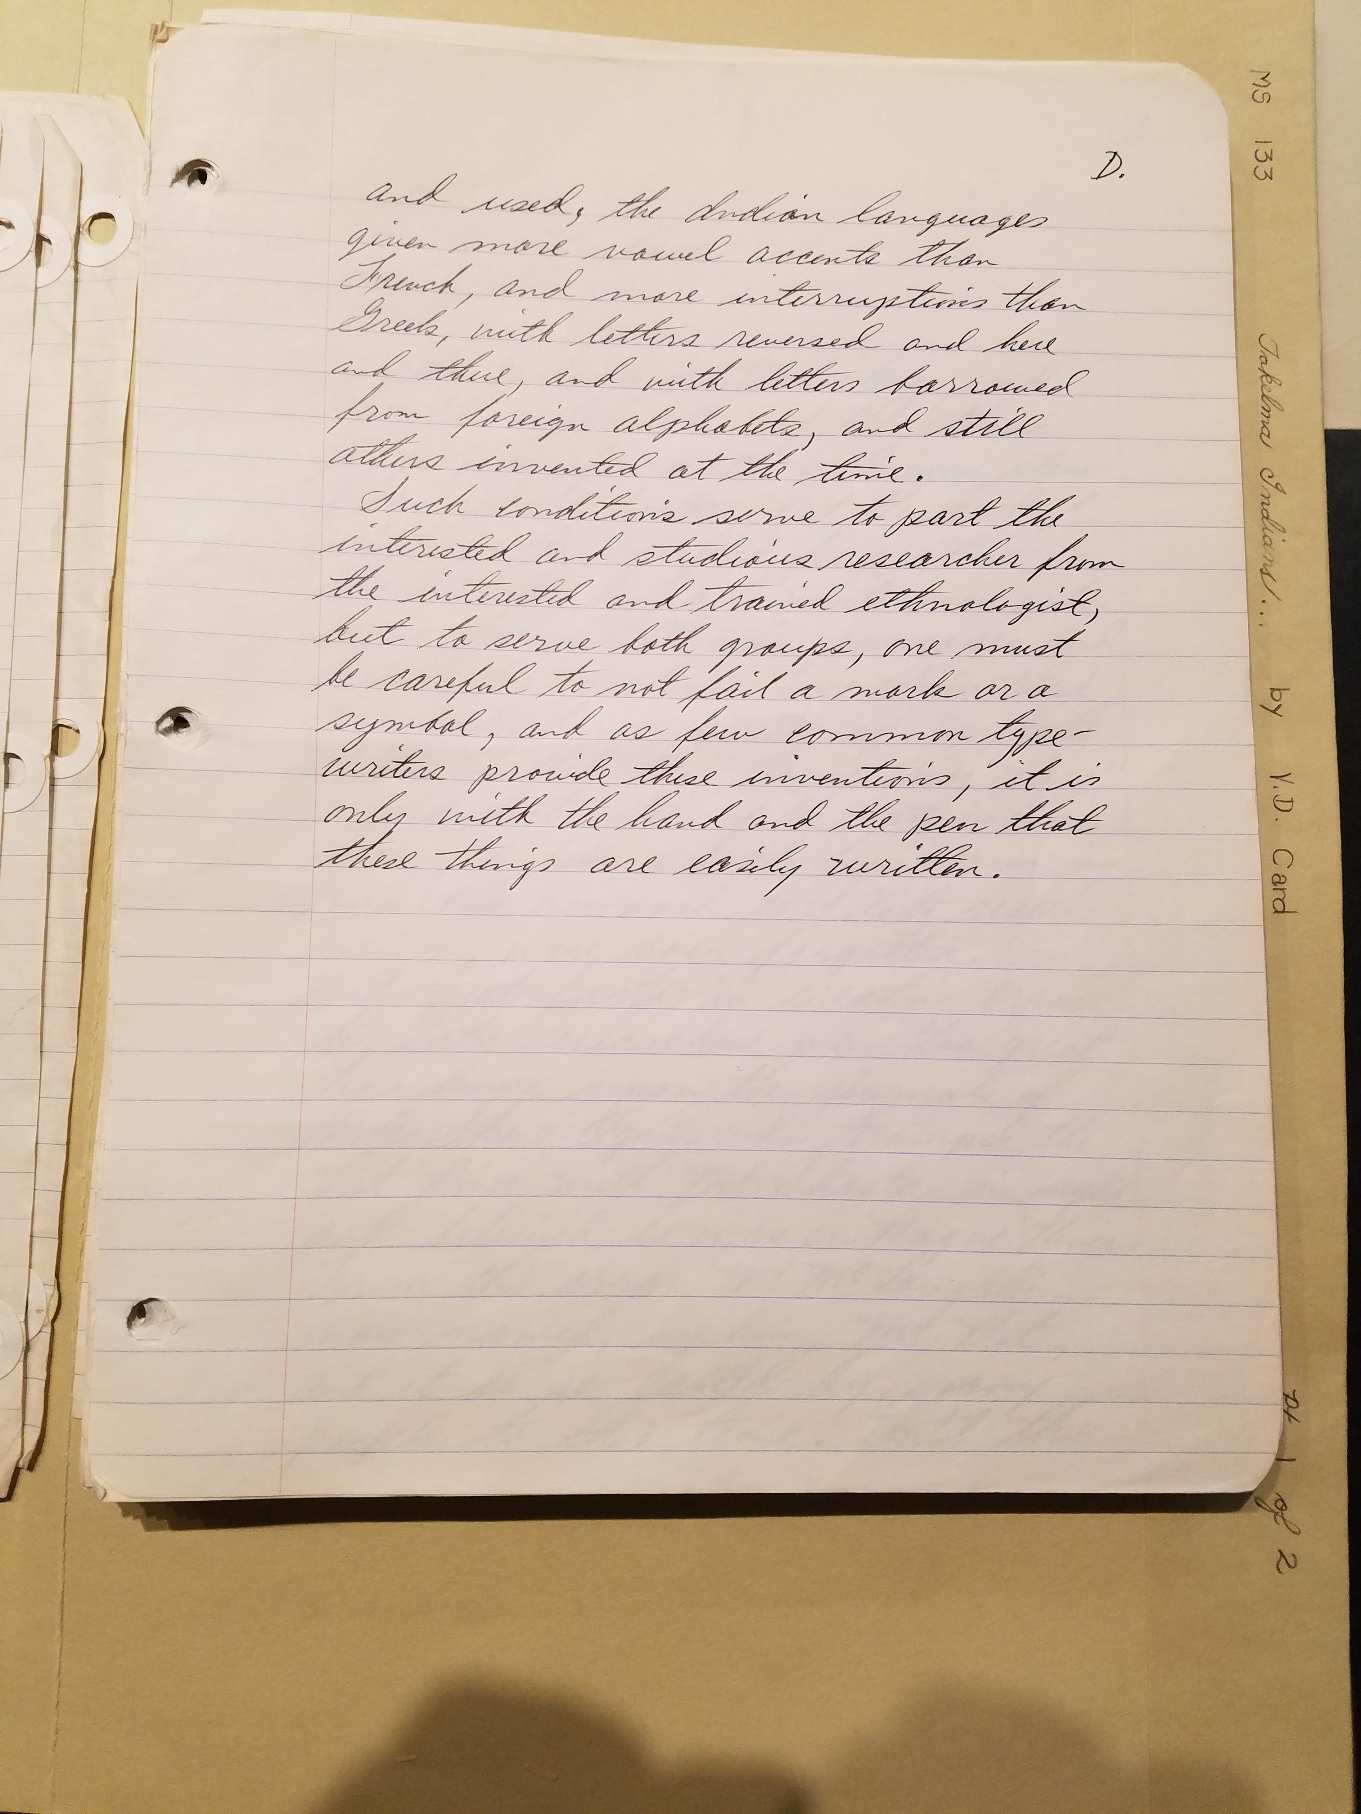 D.
and used, the Indian languages
given more vowel accents than
French, and more interruptions than
Greek, with letters reversed and here
and there, and with letters borrowed
from foreign alphabets, and still
others invented at the time.
Such conditions serve to part the
interested and studious researcher from
the interested and trained ethnologist,
but to serve both groups, one must
be careful to not fail a mark or a
symbol, and as few common type-
writers provide these inventions, it is
only with the hand and the pen that
these things are easily written.
MS 133 Takelma Indians... by V.D. Card pt 1 of 2